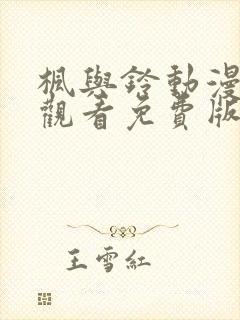 楓與鈴動漫
觀看免費版
王雪紅